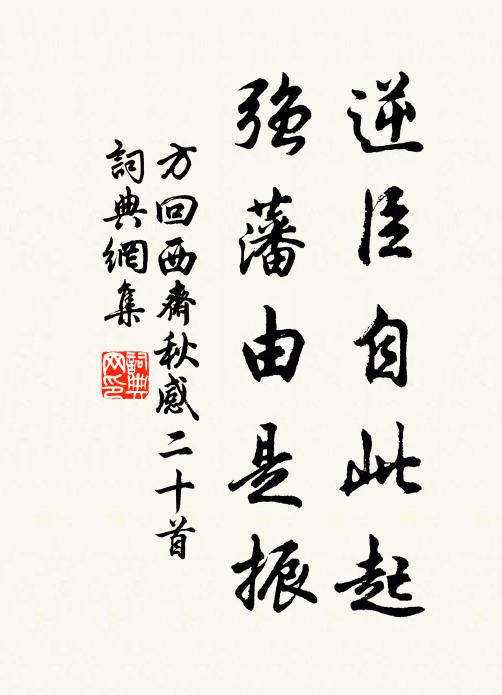 逆臣自此起
強藩由是振
方回西齋秋感二十首
詞典網集
詞典网印